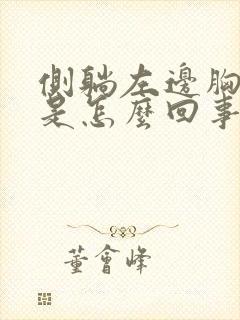 側躺左邊胸
是怎麼回事
董會峰